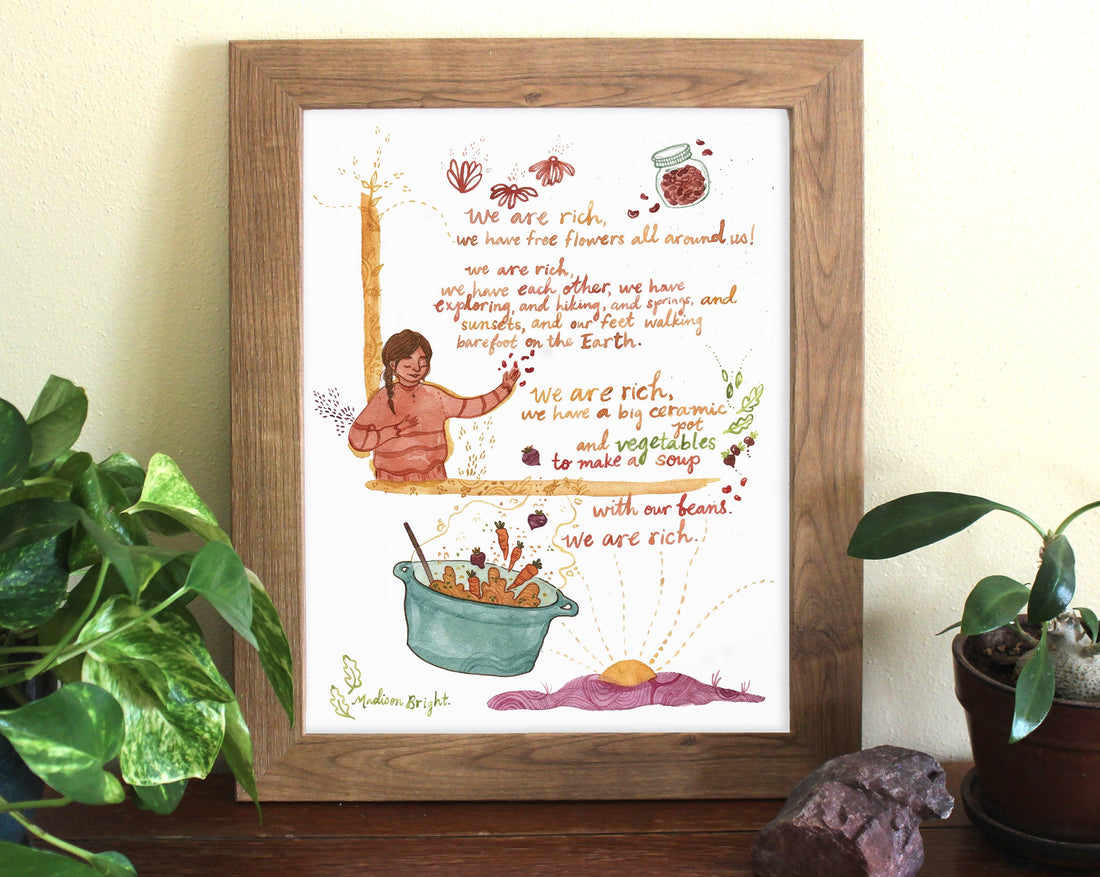 we are rich,
we have free flowers all around us!
we are rich,
we have each other, we have
exploring, and hiking, and springs, and
sunsets, and our feet walking
barefoot on the Earth.
we are rich,
we have a big ceramic
pot
and vegetables
to make a soup
with our beans.
we are rich.
Madison Bright.